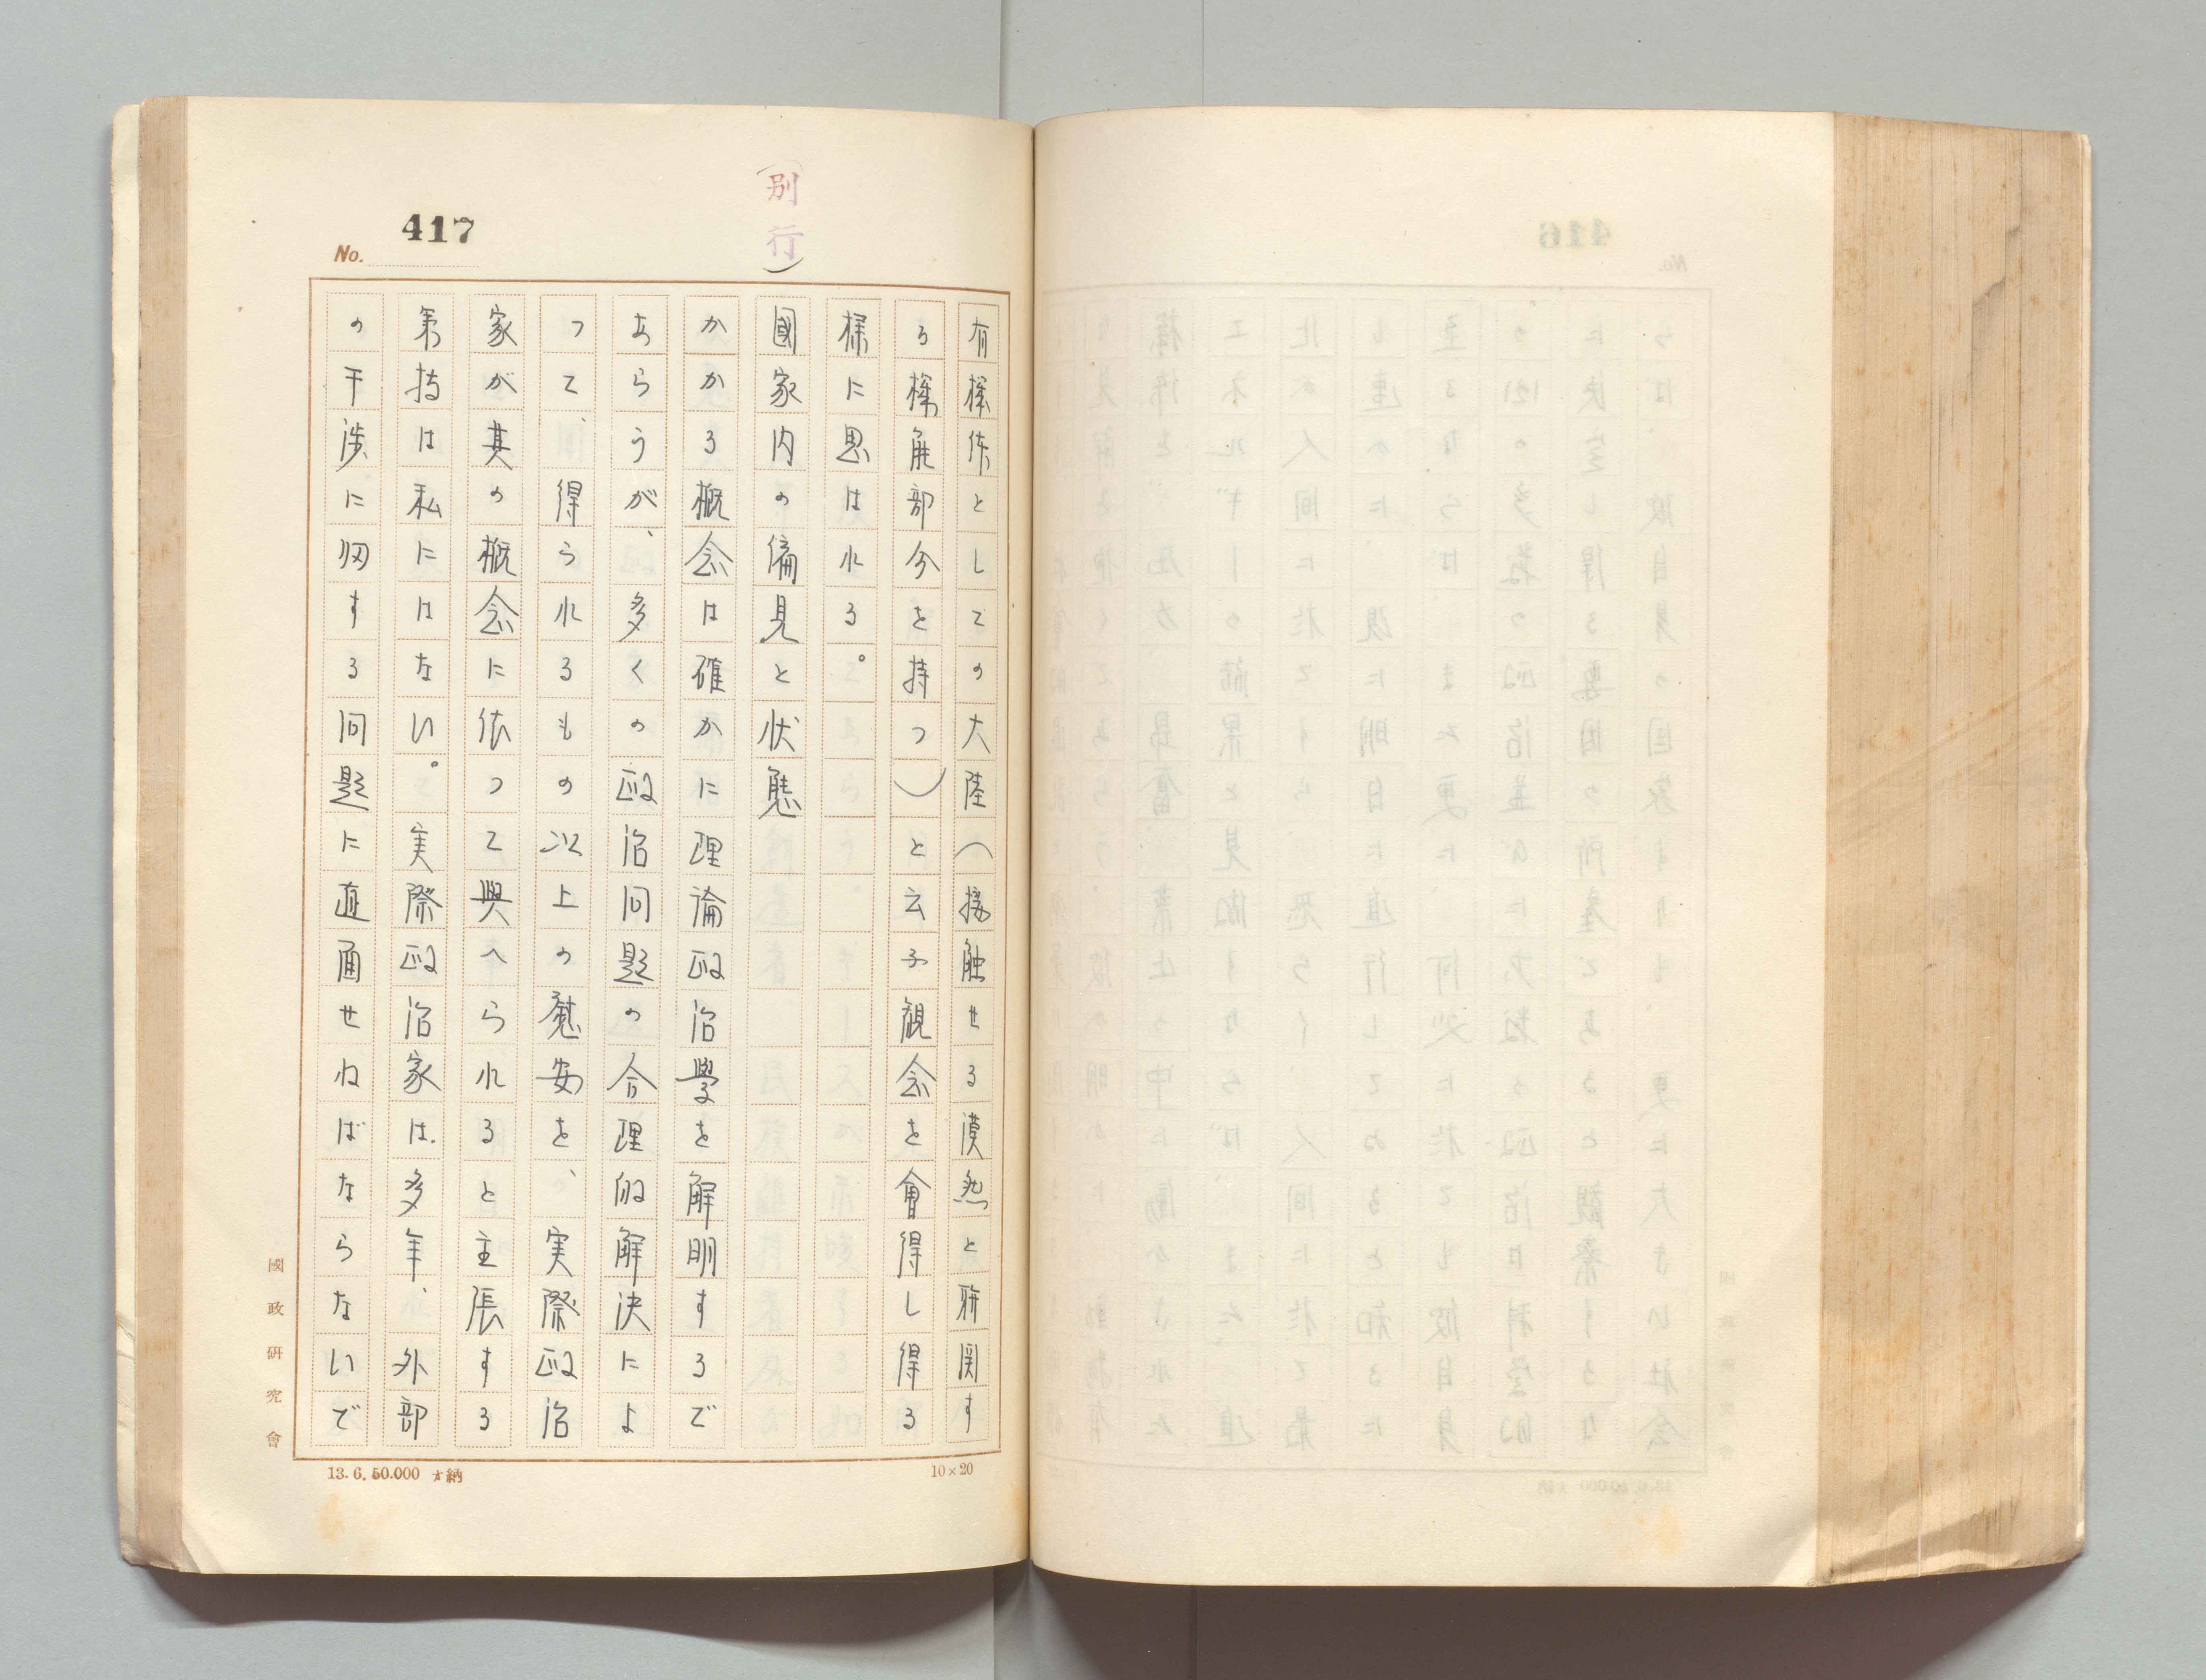 417
No.
(別行)
有機体としての大陸(接触せる漠然と聯関す
る機能部分を持つ)と云ふ観念を會得し得る
様に思はれる。
國家内の偏見と状態
かかる概念は確かに理論政治學を解明するで
あらうが、多くの政治問題の合理的解決によ
つて、得られるもの以上の慰安を、実際政治
家が其の概念に依つて與へられると主張する
は私にはない。実際政治家は多年、外部
の干渉に帰する問題に直面せねばならないで
國政研究會
13.6.50.000 納
10×20